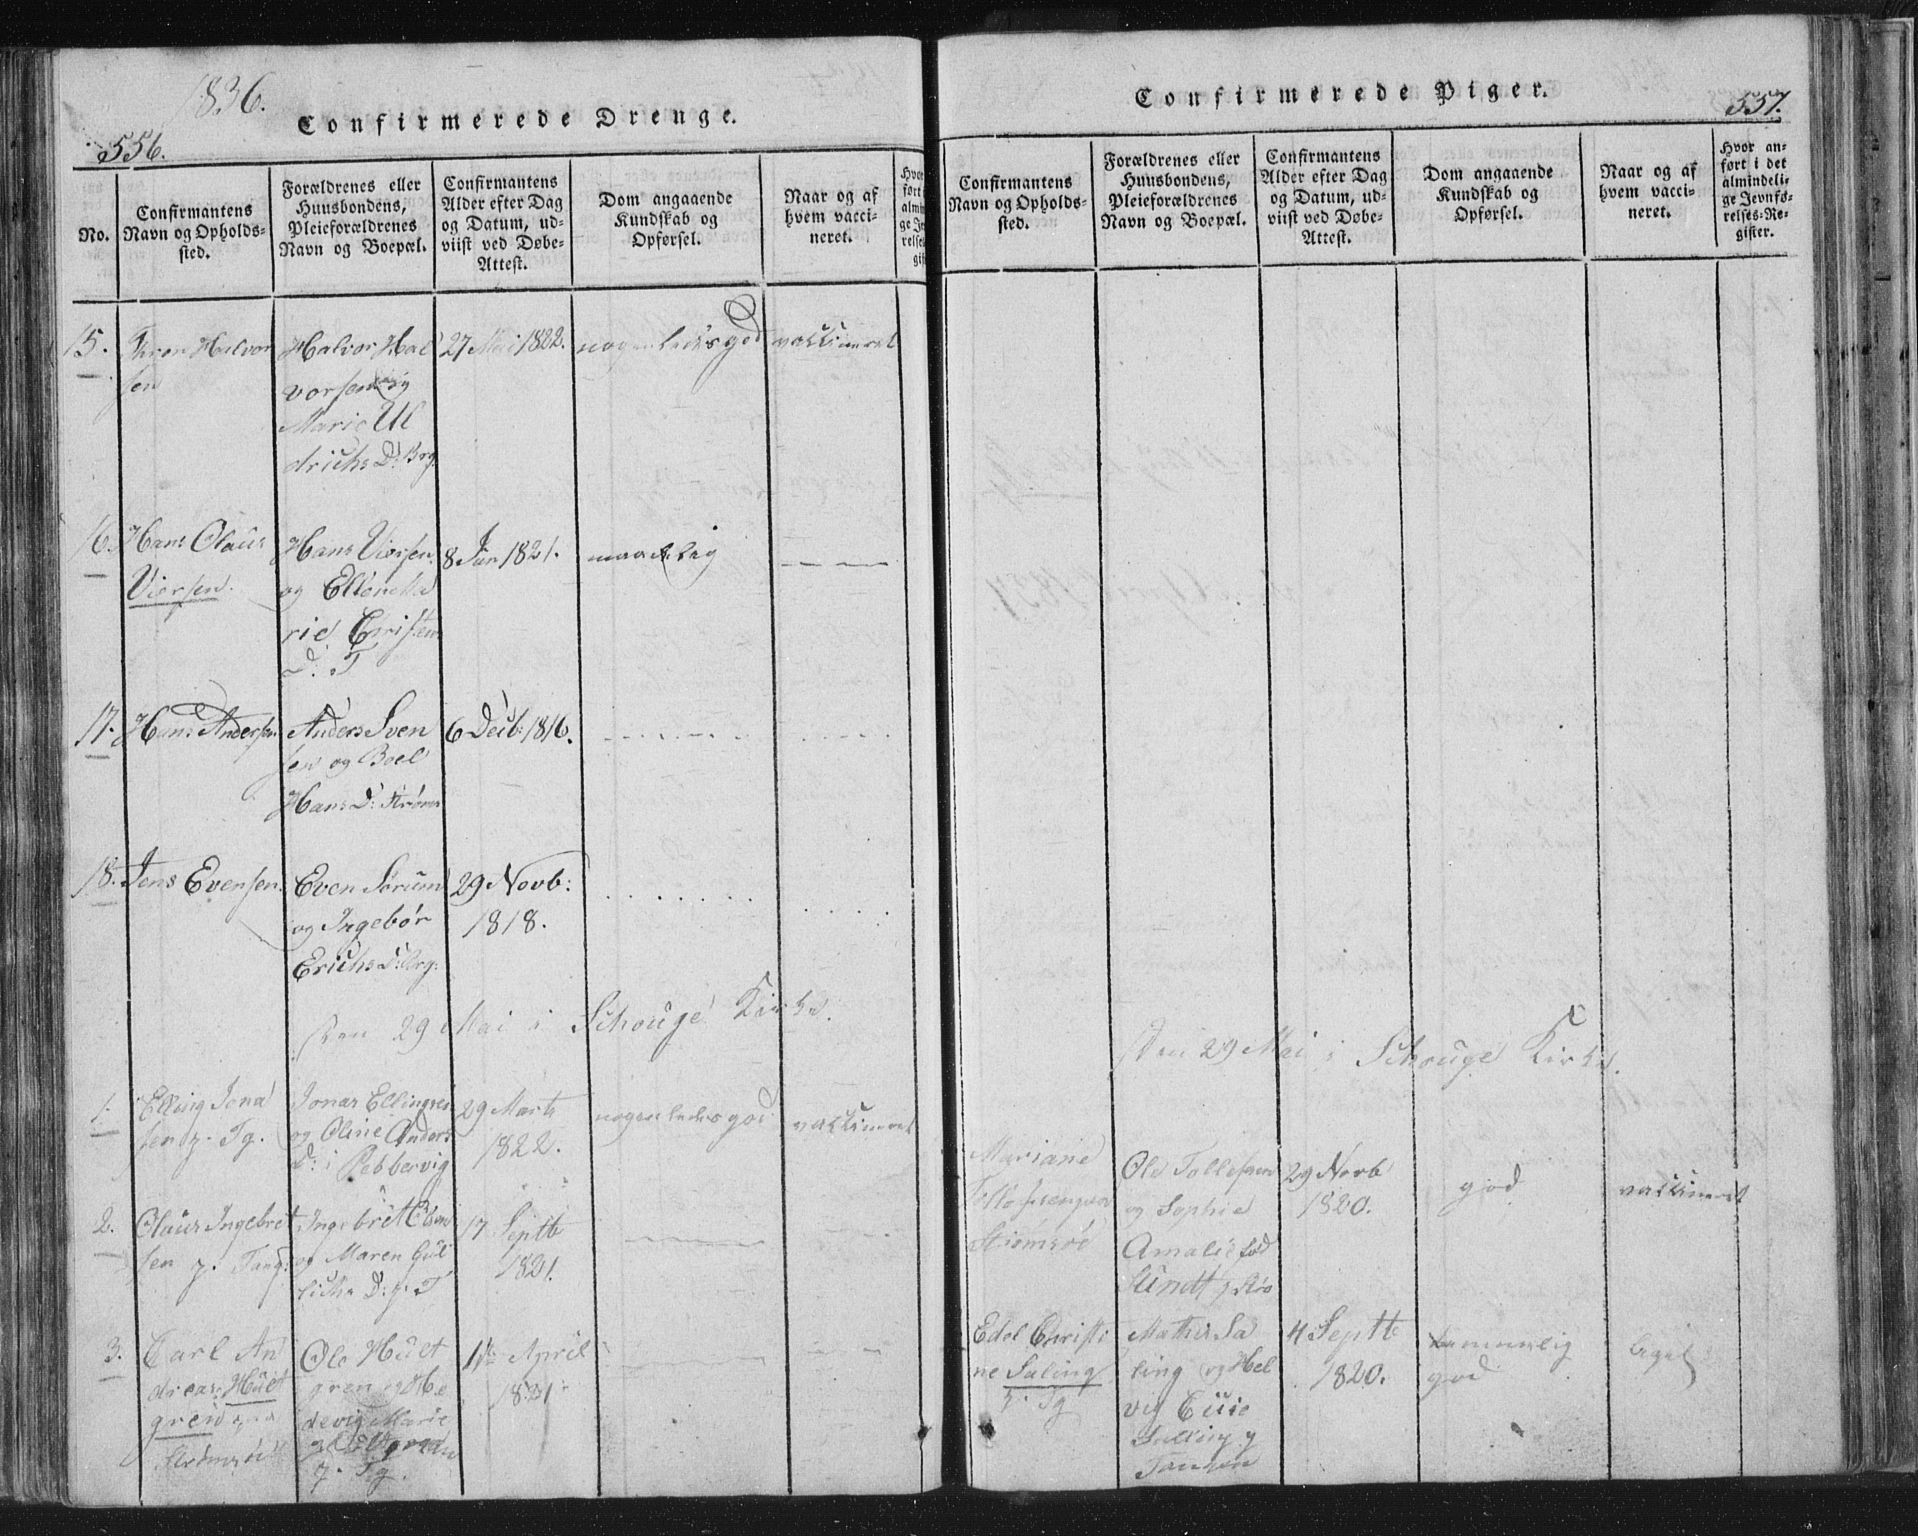 1836.
556.
Confirmerede Drenge.
No.
Confirmantens
Navn og Opholds-
sted.
Forældrenes eller
Huusbondens,
Pleieforældrenes
Navn og Boepæl.
Confirmantens
Alder efter Dag
og Datum, ud-
viist ved Døbe-
Attest.
Dom angaaende
Kundskab og
Opførsel.
Naar og af
hvem vacci-
neret.
15.
Halvor
sen
Halvor Hal
vorsen og
Marie Ul
drichs D: Brg.
27 Mai 1822.
nogenledes god
vaccineret
16.
Hans Olaus
Viersen.
Hans Viersen
og Ellen Ma
rie Christens
D: T
8 Jan 1821.
maadelig
17.
Hans Andersen
Anders Sven
sen og Boel
Hans D: Strøms
6 Decb: 1816.
18.
Jens Evensen
Even Sørum
og Ingebór
Erichs D: Brg:
29 Novb:
1818.
Den 29 Mai i Schouge Kirke.
1.
Elling Jona
sen p. Tg.
Jonas Ellingsen
og Oline Anders
D: i Rebbervig
29 Marts
1822.
nogenledes god
vaccineret
2.
Olaus Ingebret
sen p. Tang:
Ingebret Olsen
og Maren Gul
lichs D: p. T
17 Septb
1821.
3.
Carl An
dreas Huet
gren
Strømsöe
Ole Huet
gren og He
devig Marie
p. Tg.
April
1821
Confirmerede Piger.
557.
Confirmantens
Navn og Opholds-
sted.
Forældrenes eller
Huusbondens,
Pleieforældrenes
Navn og Boepæl.
Confirmantens
Alder efter Dag
og Datum, ud-
viist ved Døbe-
Attest.
Dom angaaende
Kundskab og
Opførsel.
Naar og af
hvem vacci-
neret.
Hvor an-
ført i det
almindeli-
ge Jevnfø-
relses-Re-
gister.
Den 29 Mai i Schouge Kirke.
Mariane
Strömsöe
Ole Tollefsen
og Sophie
Amalie fød
Lundt p. Strø
29 Novb
1820.
god
vaccineret
Edel Christi
ne Saling
p. Tg
Mathis Sa
ling og Hel
vig
Saling p
Tangen
4 Septb
1820.
temmelig
god
ligel